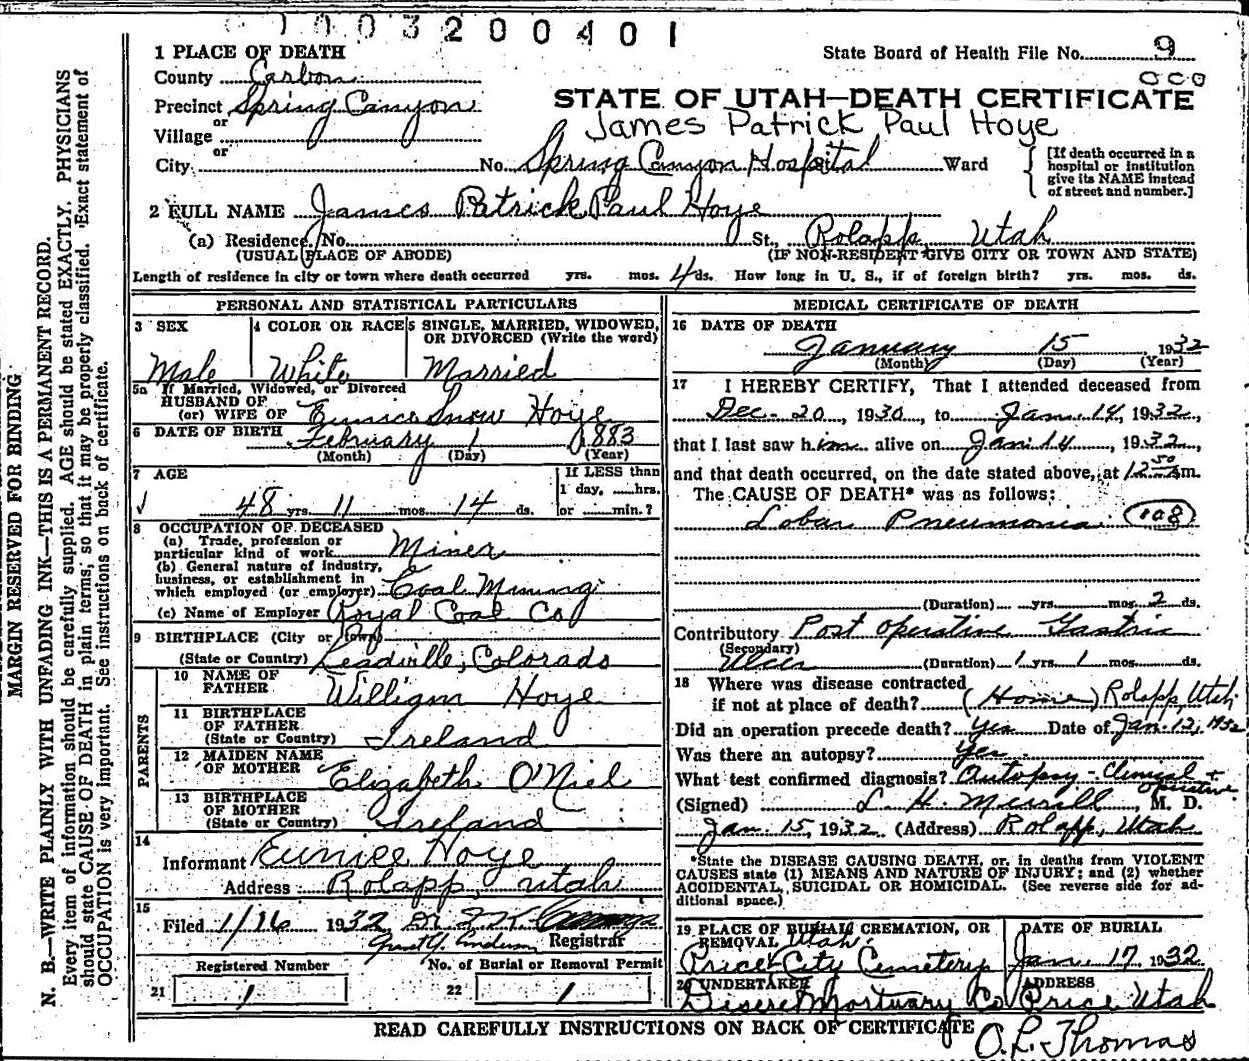 1003200401
1 PLACE OF DEATH
State Board of Health File No. 9
County Carbon
000
Precinct Spring Canyon
STATE OF UTAH—DEATH CERTIFICATE
or
James Patrick Paul Hoye
Village
or
City. No. Spring Canyon Hospital Ward
[If death occurred in a
hospital or institution
give its NAME instead
of street and number.]
2 FULL NAME James Patrick Paul Hoye
(a) Residence, No. St., Rolapp, Utah
(USUAL PLACE OF ABODE) (IF NON-RESIDENT GIVE CITY OR TOWN AND STATE)
Length of residence in city or town where death occurred yrs. mos. 4 ds. How long in U. S., if of foreign birth? yrs. mos. ds.
PERSONAL AND STATISTICAL PARTICULARS
3 SEX 4 COLOR OR RACE 5 SINGLE, MARRIED, WIDOWED,
OR DIVORCED (Write the word)
Male White Married
5a If Married, Widowed, or Divorced
HUSBAND OF
(or) WIFE OF Eunice Snow Hoye
6 DATE OF BIRTH February 1 1883
(Month) (Day) (Year)
7 AGE If LESS than
1 day, hrs.
48 yrs. 11 mos. 14 ds. or min.?
8 OCCUPATION OF DECEASED
(a) Trade, profession or
particular kind of work Miner
(b) General nature of industry,
business, or establishment in
which employed (or employer) Coal Mining
(c) Name of Employer Royal Coal Co
9 BIRTHPLACE (City or Town)
(State or Country) Leadville, Colorado
PARENTS
10 NAME OF
FATHER William Hoye
11 BIRTHPLACE
OF FATHER
(State or Country) Ireland
12 MAIDEN NAME
OF MOTHER Elizabeth O'Niel
13 BIRTHPLACE
OF MOTHER
(State or Country) Ireland
14
Informant Eunice Hoye
Address Rolapp Utah
15
Filed 1/16 1932 Dr.
Registrar
Registered Number No. of Burial or Removal Permit
21 1 22 1
MEDICAL CERTIFICATE OF DEATH
16 DATE OF DEATH
January 15 1932
(Month) (Day) (Year)
17 I HEREBY CERTIFY, That I attended deceased from
Dec. 20, 1930, to Jan. 14, 1932,
that I last saw him alive on Jan. 14, 1932,
and that death occurred, on the date stated above, at 12 50 am.
The CAUSE OF DEATH* was as follows:
Lobar Pneumonia (108)
(Duration) yrs. mos. 2 ds.
Contributory Post operative Gastric
(Secondary)
Ulcer (Duration) 1 yrs. 1 mos. ds.
18 Where was disease contracted
if not at place of death? (Home) Rolapp, Utah
Did an operation precede death? Yes Date of Jan. 12, 1932
Was there an autopsy? Yes
What test confirmed diagnosis? Autopsy - Clinical +
operative
(Signed) L. H. Merrill, M. D.
Jan. 15, 1932 (Address) Rolapp, Utah
*State the DISEASE CAUSING DEATH, or, in deaths from VIOLENT
CAUSES state (1) MEANS AND NATURE OF INJURY; and (2) whether
ACCIDENTAL, SUICIDAL OR HOMICIDAL. (See reverse side for ad-
ditional space.)
19 PLACE OF BURIAL, CREMATION, OR DATE OF BURIAL
REMOVAL Utah
Price City Cemetery Jan. 17 1932
20 UNDERTAKER ADDRESS
Deseret Mortuary Co Price Utah
READ CAREFULLY INSTRUCTIONS ON BACK OF CERTIFICATE
O. L. Thomas
MARGIN RESERVED FOR BINDING
N. B.—WRITE PLAINLY WITH UNFADING INK—THIS IS A PERMANENT RECORD.
Every item of information should be carefully supplied. AGE should be stated EXACTLY. PHYSICIANS
should state CAUSE OF DEATH in plain terms, so that it may be properly classified. Exact statement of
OCCUPATION is very important. See instructions on back of certificate.